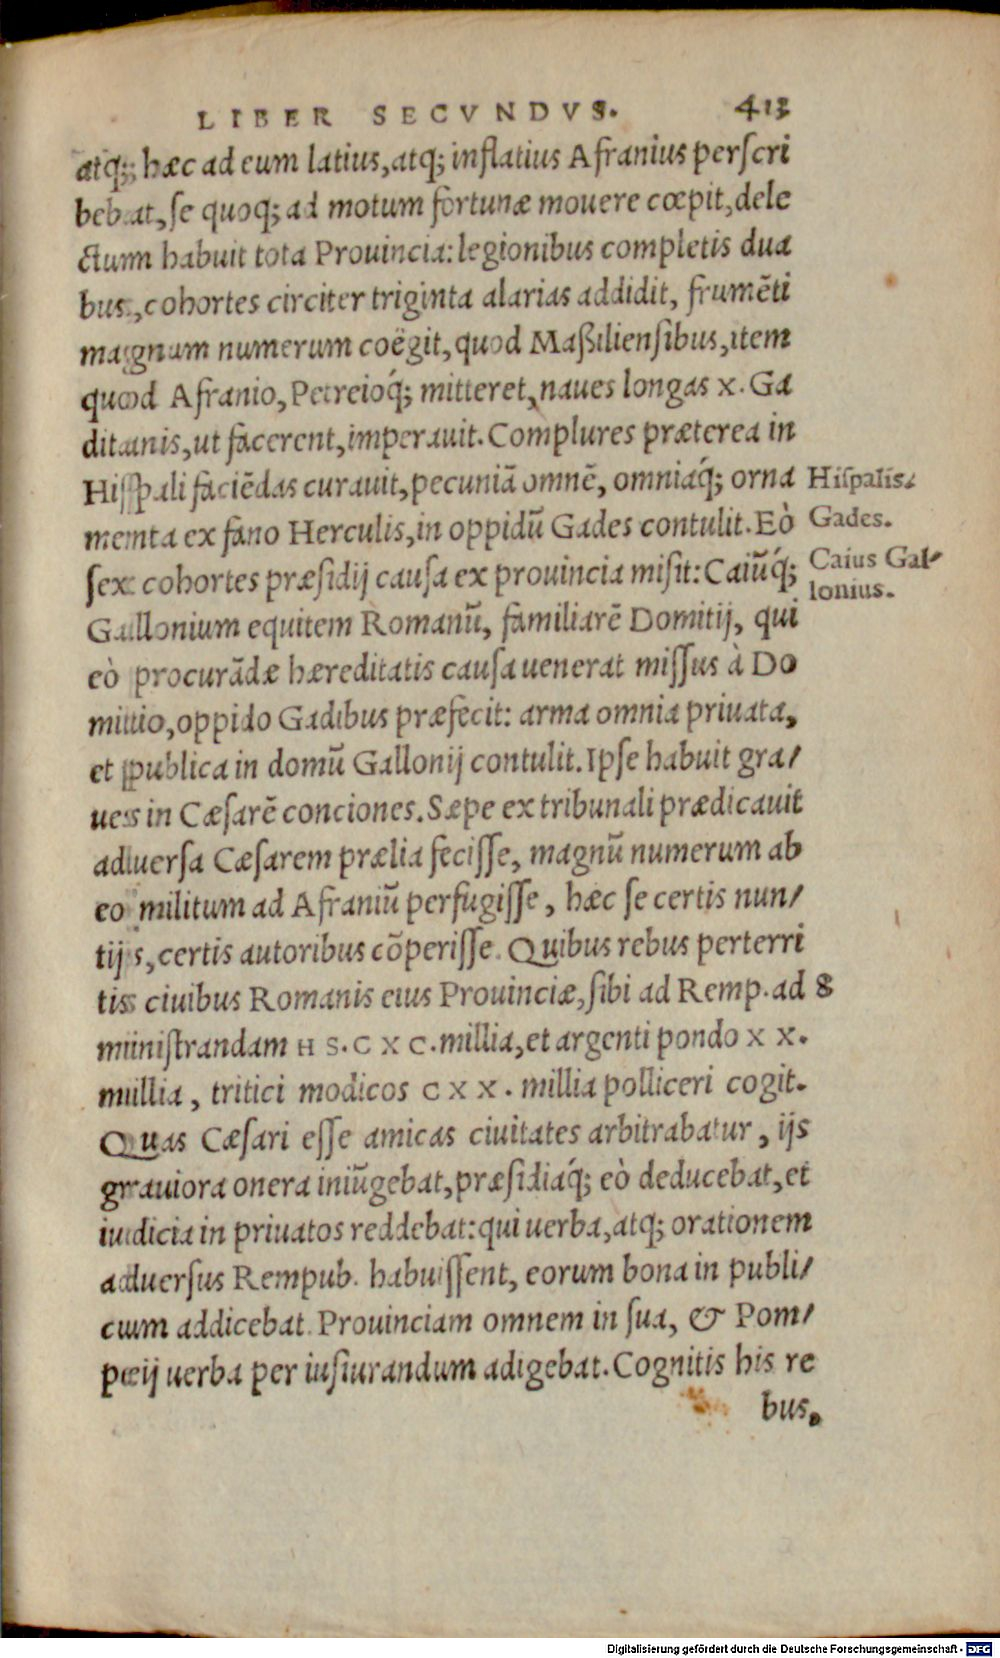 LIBER SECVNDVS. 413
atq;, hæc ad eum latius, atq; inflatius Afranius perscri
bebat, se quoq; ad motum fortunæ mouere cœpit, dele
ctum habuit tota Prouincia: legionibus completis dua
bus, cohortes circiter triginta alarias addidit, frumēti
magnum numerum coëgit, quod Maßiliensibus, item
quod Afranio, Petreioq́; mitteret, naues longas x. Ga
ditanis, ut facerent, imperauit. Complures præterea in
Hispali faciēdas curauit, pecuniā omnē, omniaq́; orna
menta ex fano Herculis, in oppidū Gades contulit. Eò
sex cohortes præsidij causa ex prouincia misit: Caiūq́;
Gallonium equitem Romanū, familiarē Domitij, qui
eò procurādæ hæreditatis causa uenerat missus à Do
mitio, oppido Gadibus præfecit: arma omnia priuata,
et publica in domū Gallonij contulit. Ipse habuit gra/
ues in Cæsarē conciones. Sæpe ex tribunali prædicauit
aduersa Cæsarem prælia fecisse, magnū numerum ab
eo militum ad Afraniū perfugisse, hæc se certis nun/
tijs, certis autoribus cōperisse. Quibus rebus perterri
tis ciuibus Romanis eius Prouinciæ, sibi ad Remp. ad
ministrandam HS. C X C. millia, et argenti pondo X X.
millia, tritici modicos C X X. millia polliceri cogit.
Quas Cæsari esse amicas ciuitates arbitrabatur, ijs
grauiora onera iniūgebat, præsidiaq́; eò deducebat, et
iudicia in priuatos reddebat: qui uerba, atq; orationem
aduersus Rempub. habuissent, eorum bona in publi/
cum addicebat. Prouinciam omnem in sua, & Pom/
peij uerba per iusiurandum adigebat. Cognitis his re
bus,
Hispalis.
Gades.
Caius Gal-
lonius.
8
Digitalisierung gefördert durch die Deutsche Forschungsgemeinschaft - DFG